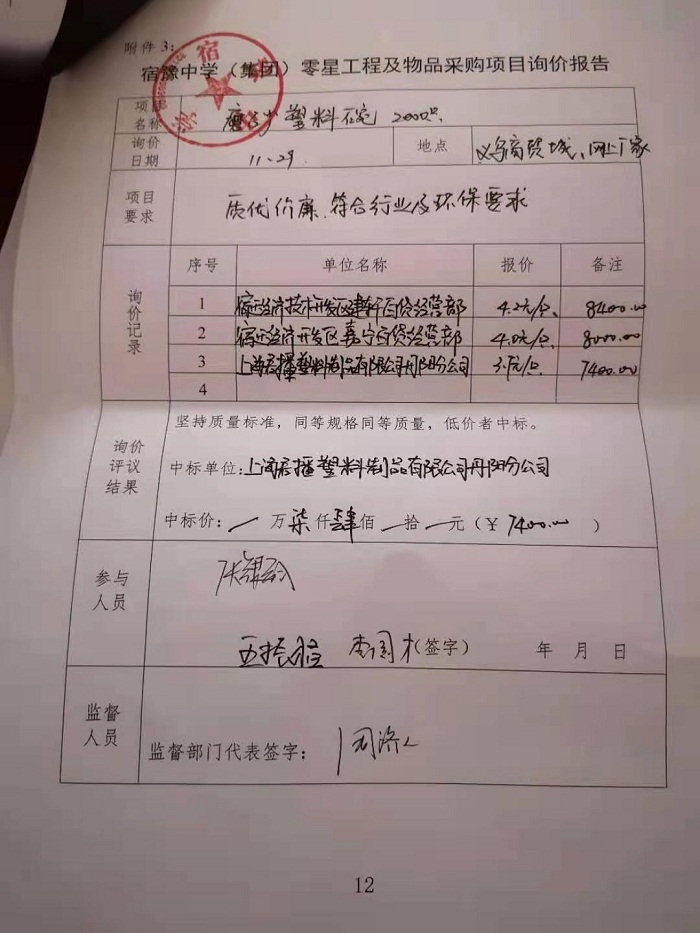 附件 3:
宿豫中学（集团）零星工程及物品采购项目询价报告
项目名称 磨砂塑料碗 2000只
询价日期 11.29. 地点 义乌商贸城、网上厂家
项目要求 质优价廉、符合行业及环保要求
询价记录 序号 单位名称 报价 备注
1 宿迁经济技术开发区建轩百货经营部 4.2元/只 8400.00
2 宿迁经济开发区嘉宁百货经营部 4.0元/只 8000.00
3 上海君播塑料制品有限公司丹阳分公司 3.7元/只 7400.00
4
询价评议结果 坚持质量标准，同等规格同等质量，低价者中标。
中标单位: 上海君播塑料制品有限公司丹阳分公司
中标价: 一 万 柒 仟 肆 佰 一 拾 一 元（¥ 7400.00 ）
参与人员
(签字) 年 月 日
监督人员 监督部门代表签字:
12